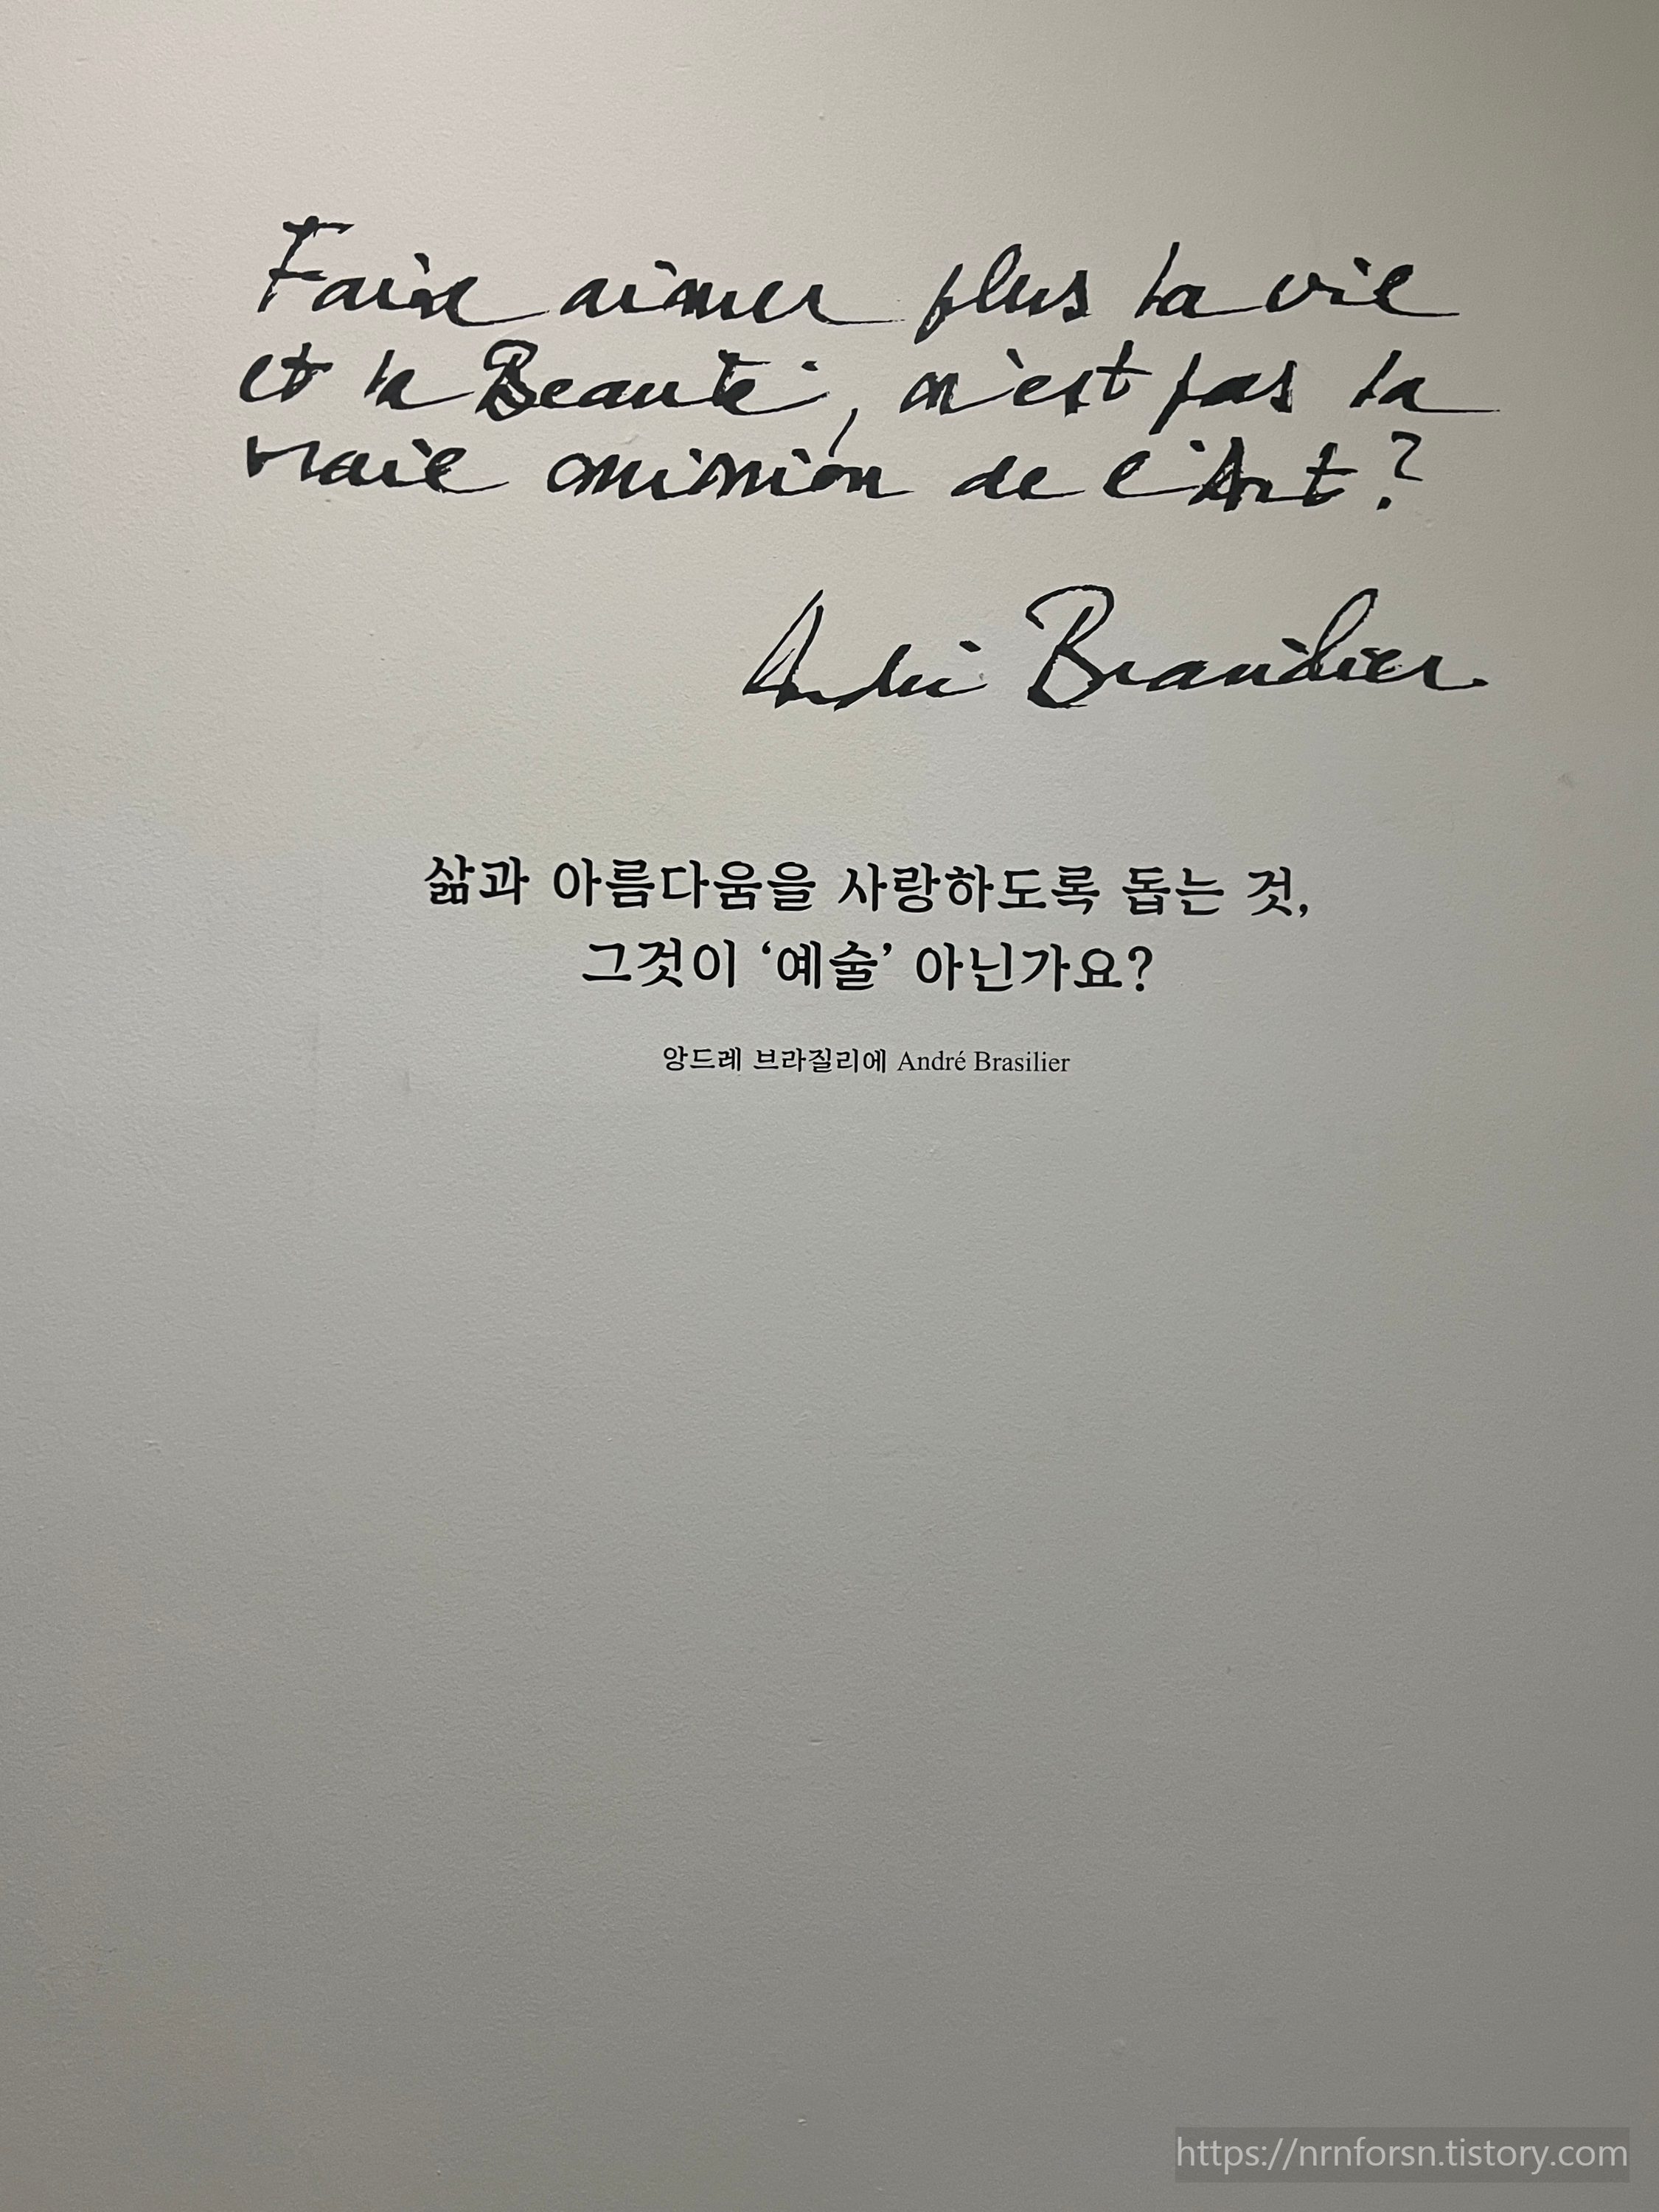 Faire aimer plus la vie
et la Beauté, n'est pas la
vraie mission de l'Art ?
André Brasilier
삶과 아름다움을 사랑하도록 돕는 것,
그것이 ‘예술’ 아닌가요?
앙드레 브라질리에 André Brasilier
https://nrnforsn.tistory.com